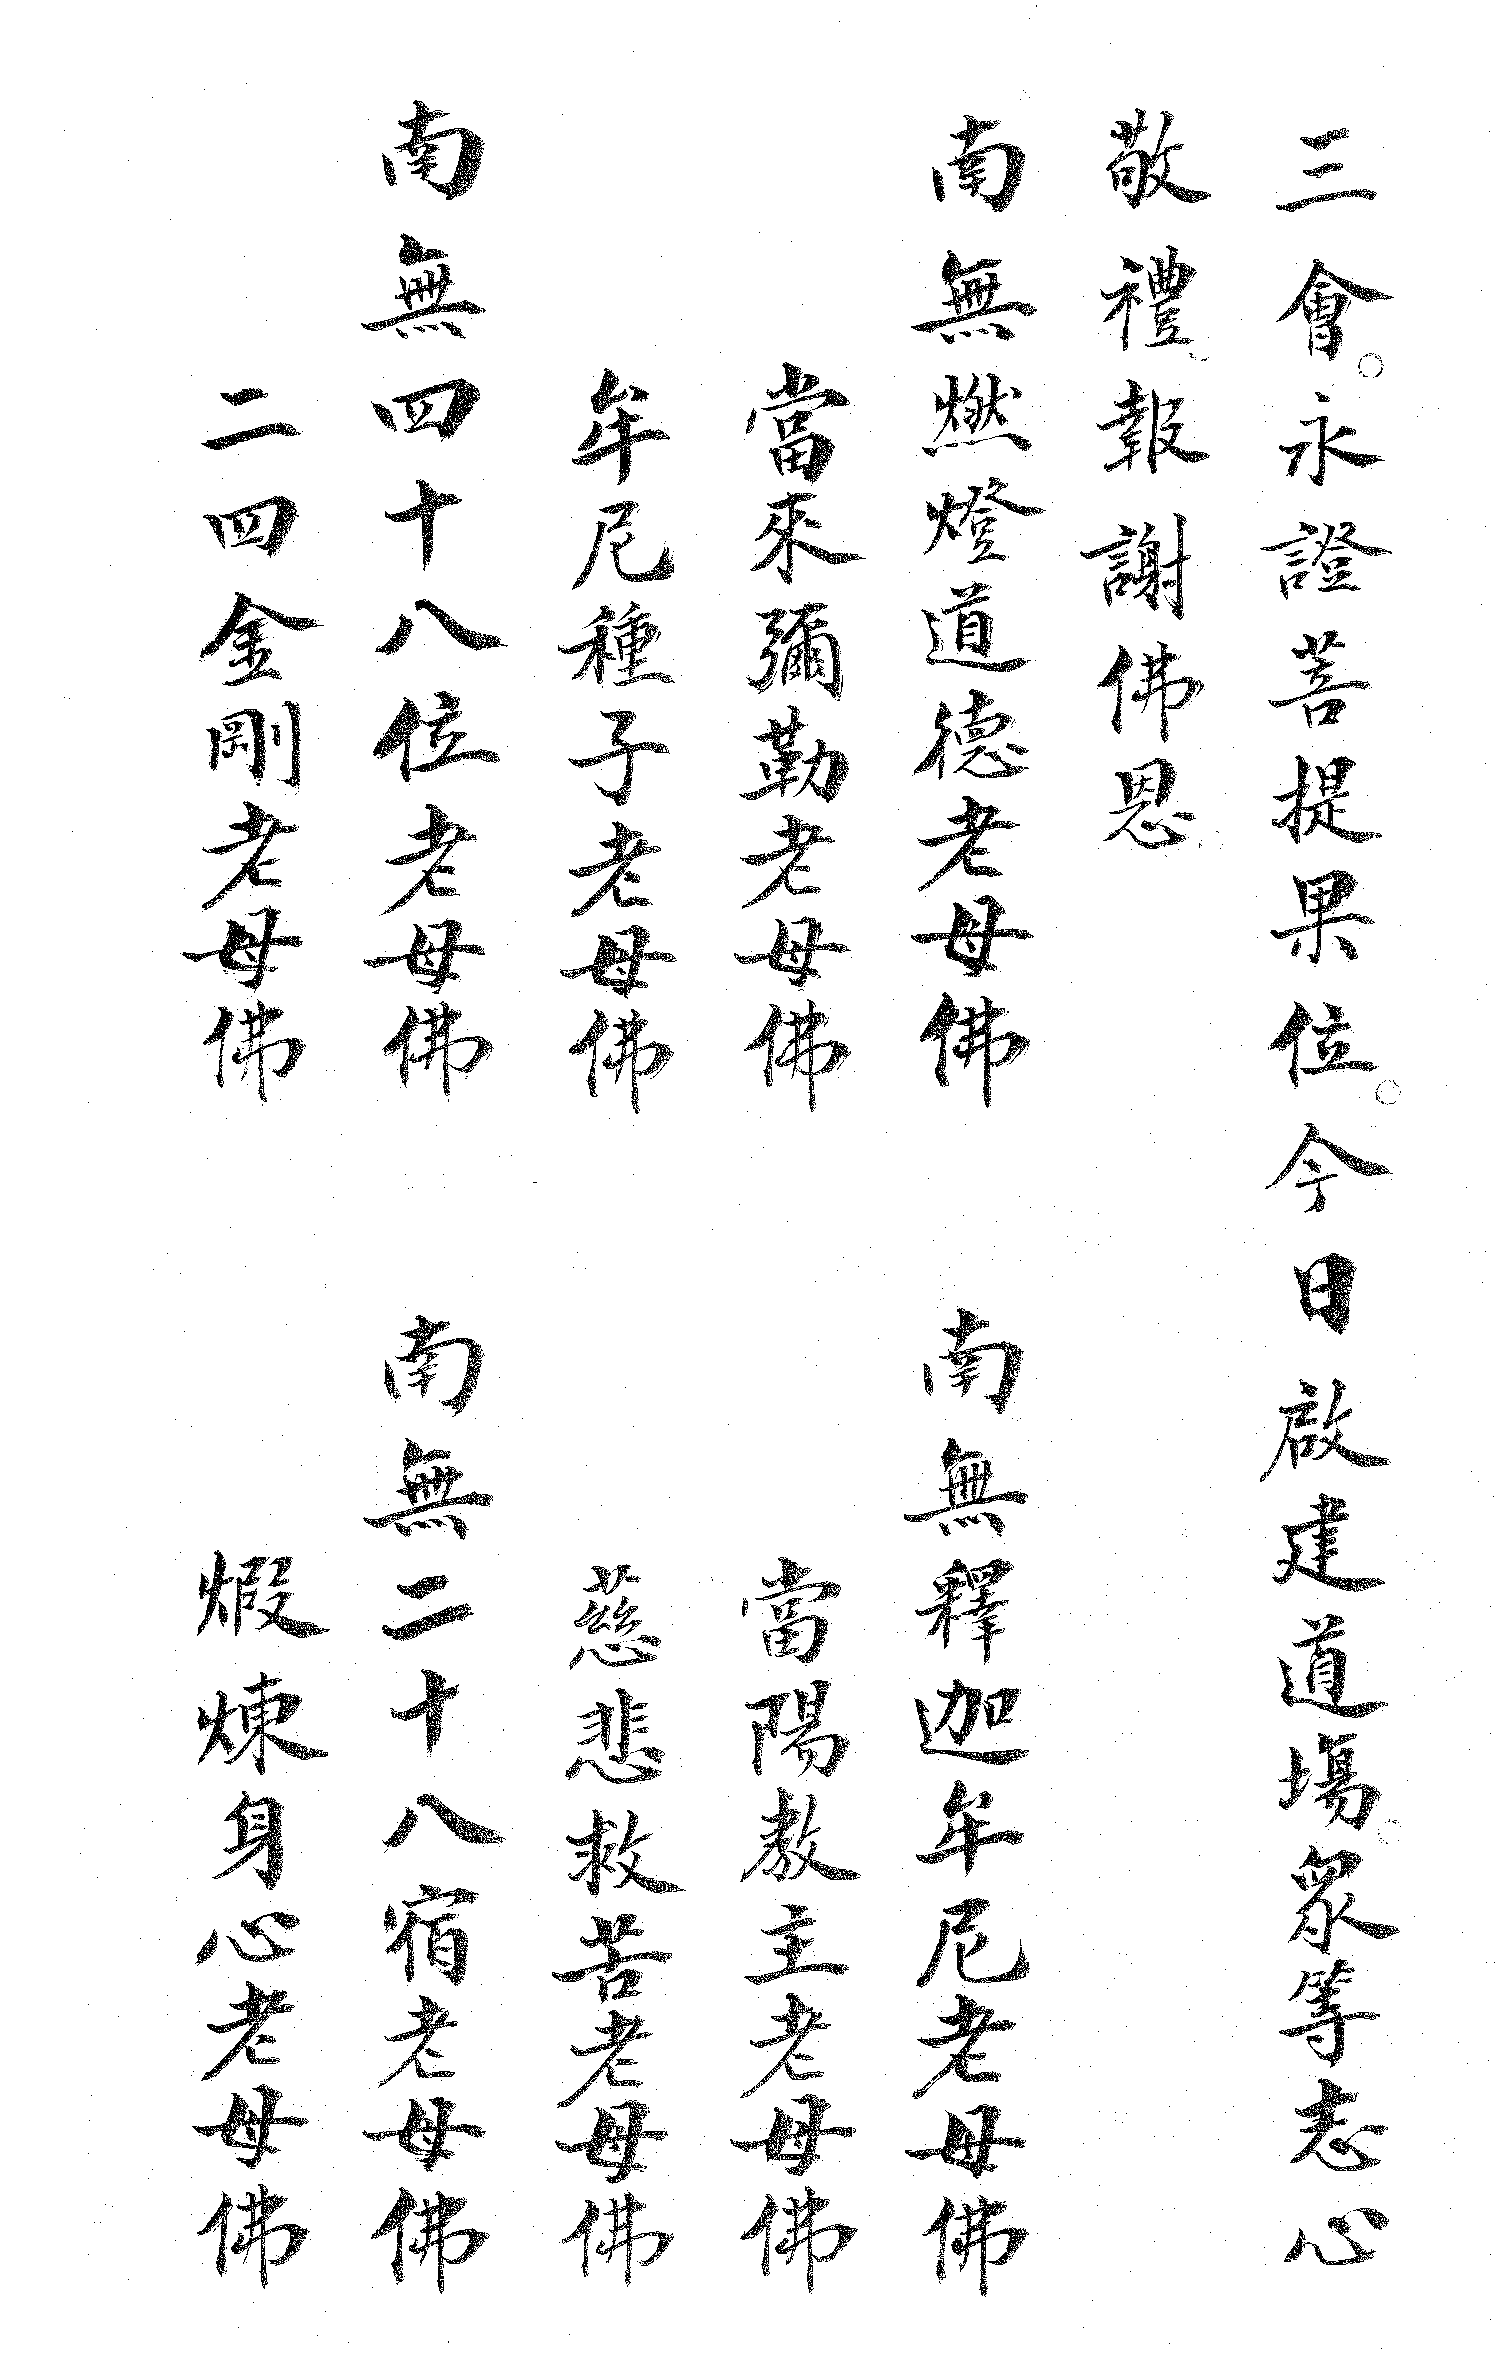 三會。永證菩提果位。今日啟建道場。眾等志心
敬禮報謝佛恩
南無燃燈道德老母佛
南無釋迦牟尼老母佛
當來彌勒老母佛
當陽教主老母佛
牟尼種子老母佛
慈悲救苦老母佛
南無四十八位老母佛
南無二十八宿老母佛
二四金剛老母佛
煆煉身心老母佛